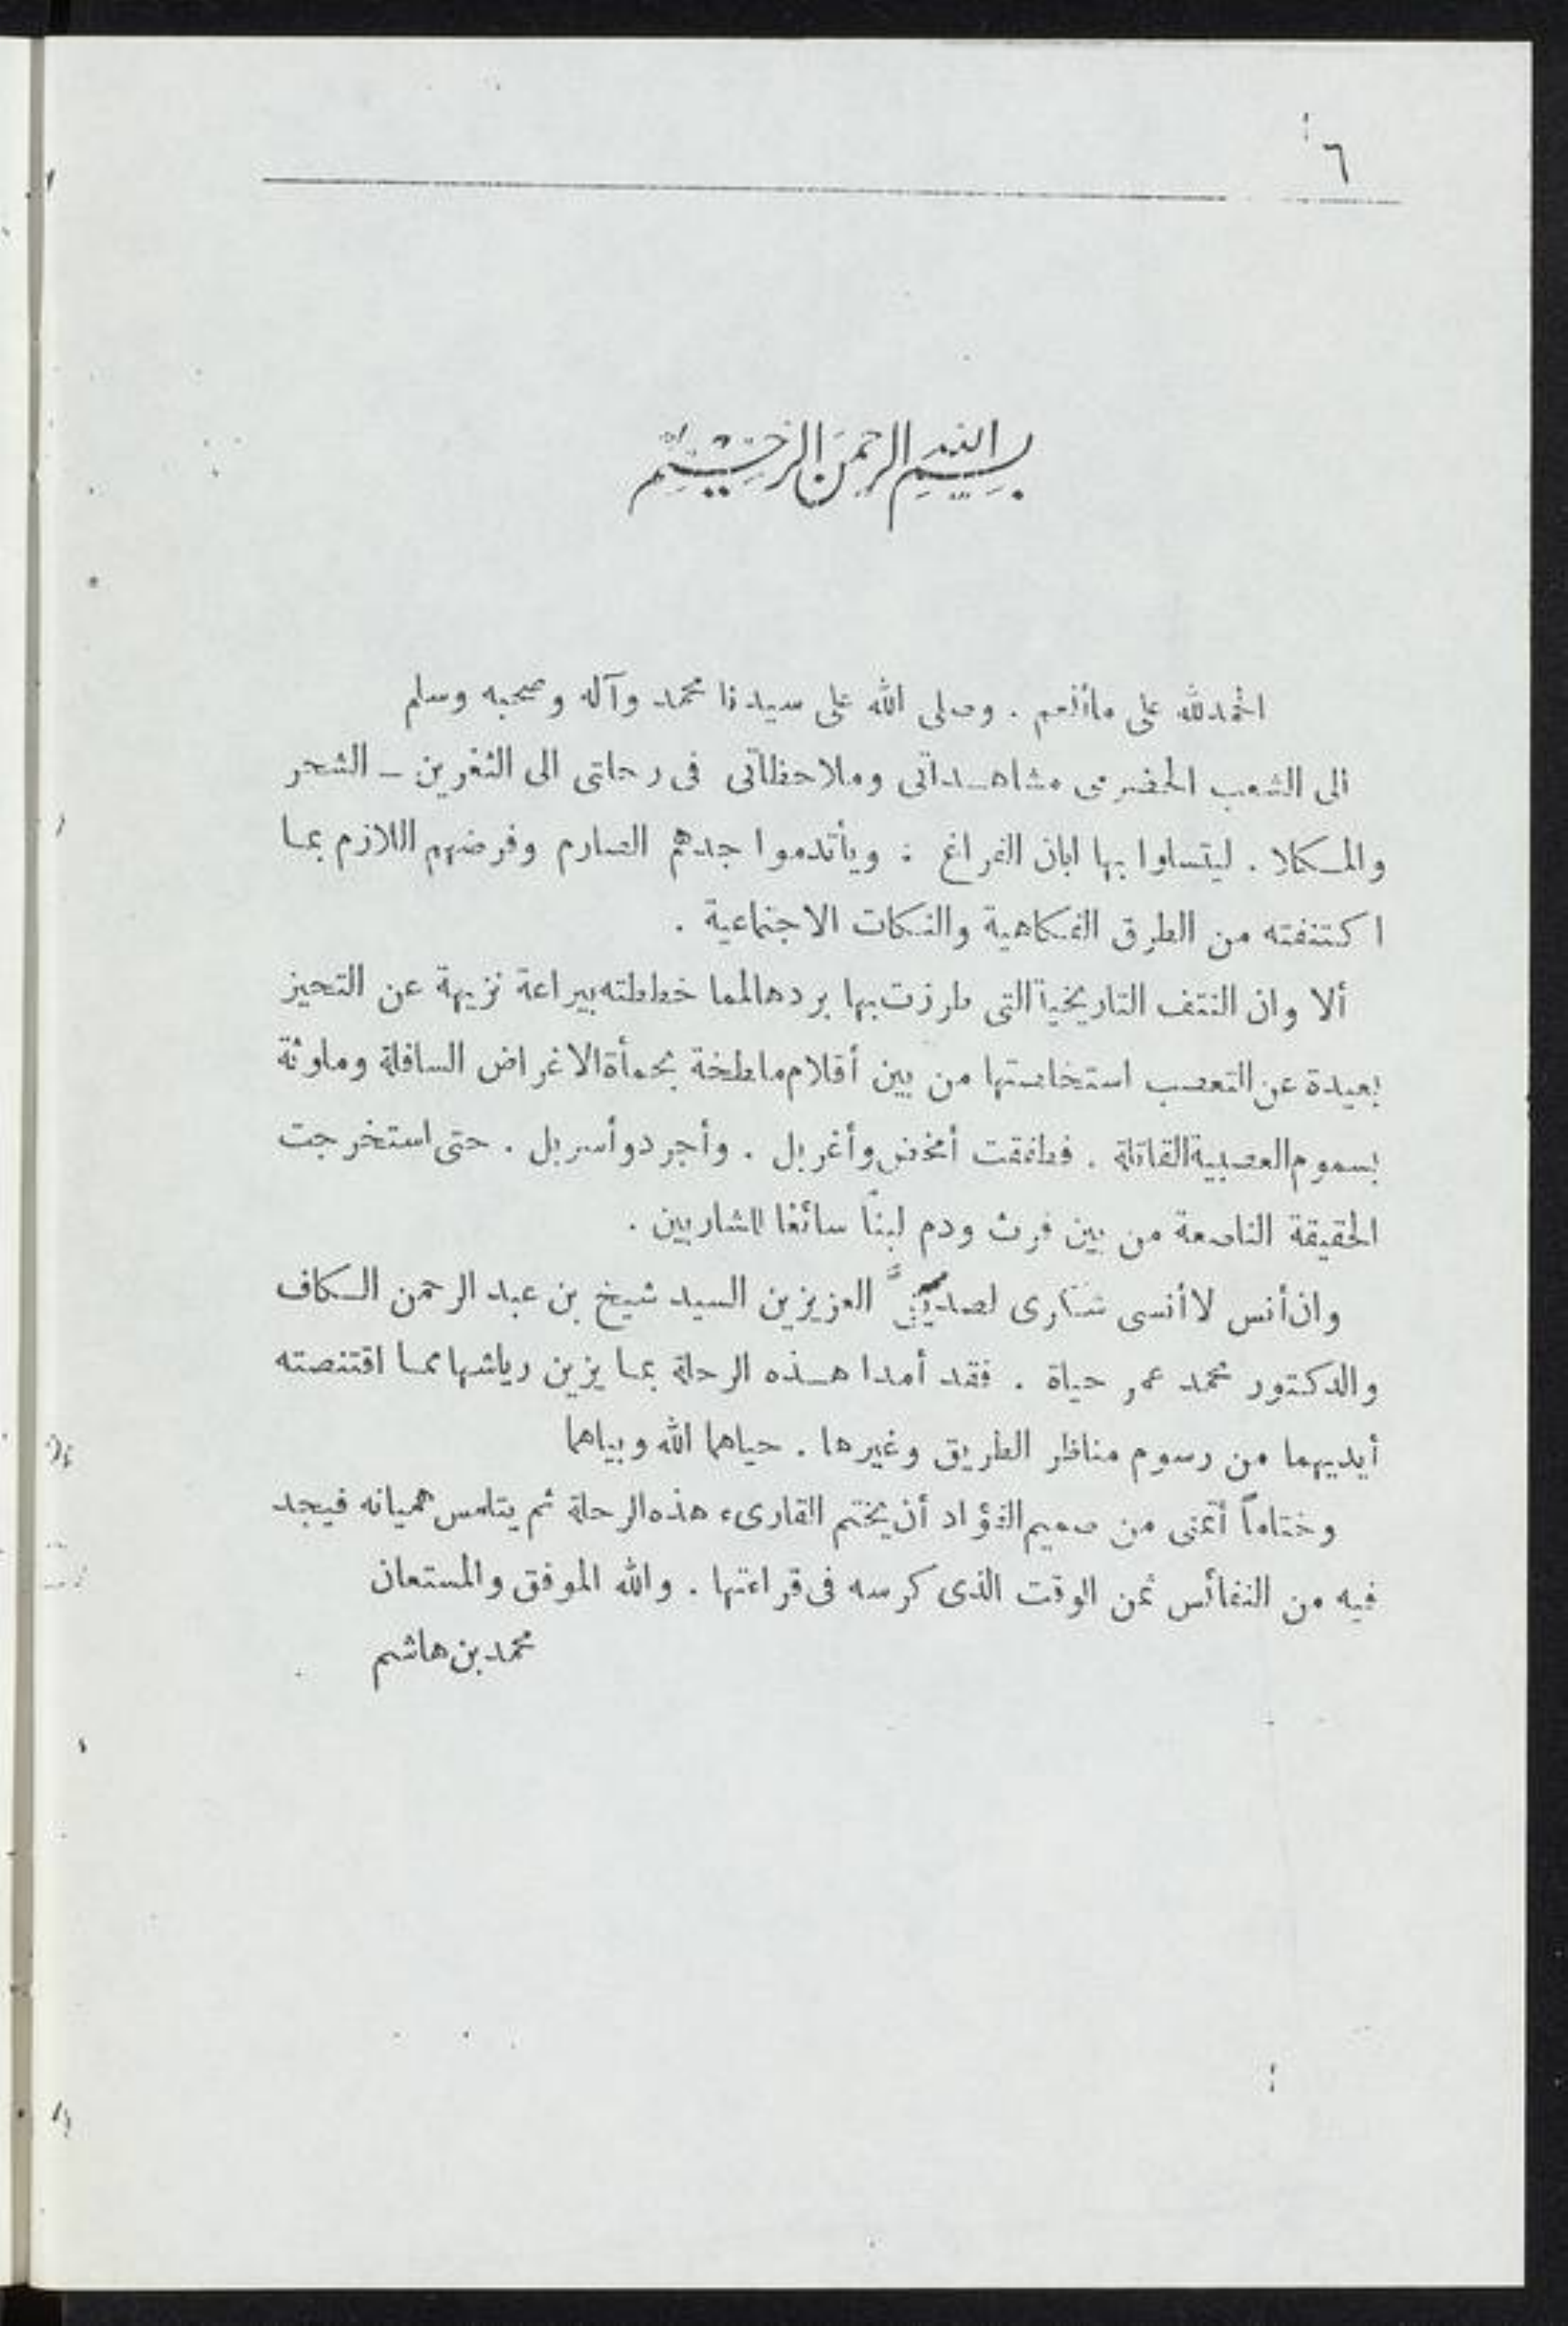 ٦
بسم الله الرحمن الرحيم
الحمد لله على ما أنعم . وصلى الله على سيدنا محمد وآله وصحبه وسلم
الى الشعب الحضرمى مشاهداتى وملاحظاتى فى رحلتى الى الثغرين – الشحر
والمكلا . ليتسلوا بها ابان الفراغ : ويأتدموا جدهم الصارم وفرضهم اللازم بما
اكتنفته من الطرق الفكاهية والنكات الاجتماعية .
ألا وان النتف التاريخية التى طرزت بها بردها لمما خططته بيراعة نزيهة عن التحيز
بعيدة عن التعصب استخلصتها من بين أقلام ملطخة بحمأة الاغراض السافلة وملوثة
بسموم العصبية القاتلة . فطفقت أمخض وأغربل . وأجرد وأسربل . حتى استخرجت
الحقيقة الناصعة من بين فرث ودم لبنًا سائغا للشاربين .
وان أنس لا أنسى شكرى لصديقىَّ العزيزين السيد شيخ بن عبد الرحمن الكاف
والدكتور محمد عمر حياة . فقد أمدا هذه الرحلة بما يزين رياشها مما اقتنصته
أيديهما من رسوم مناظر الطريق وغيرها . حياهما الله وبياهما
وختاماً أتمنى من صميم الفؤاد أن يختم القارىء هذه الرحلة ثم يتلمس هميانه فيجد
فيه من النفائس ثمن الوقت الذى كرسه فى قراءتها . والله الموفق والمستعان
محمد بن هاشم